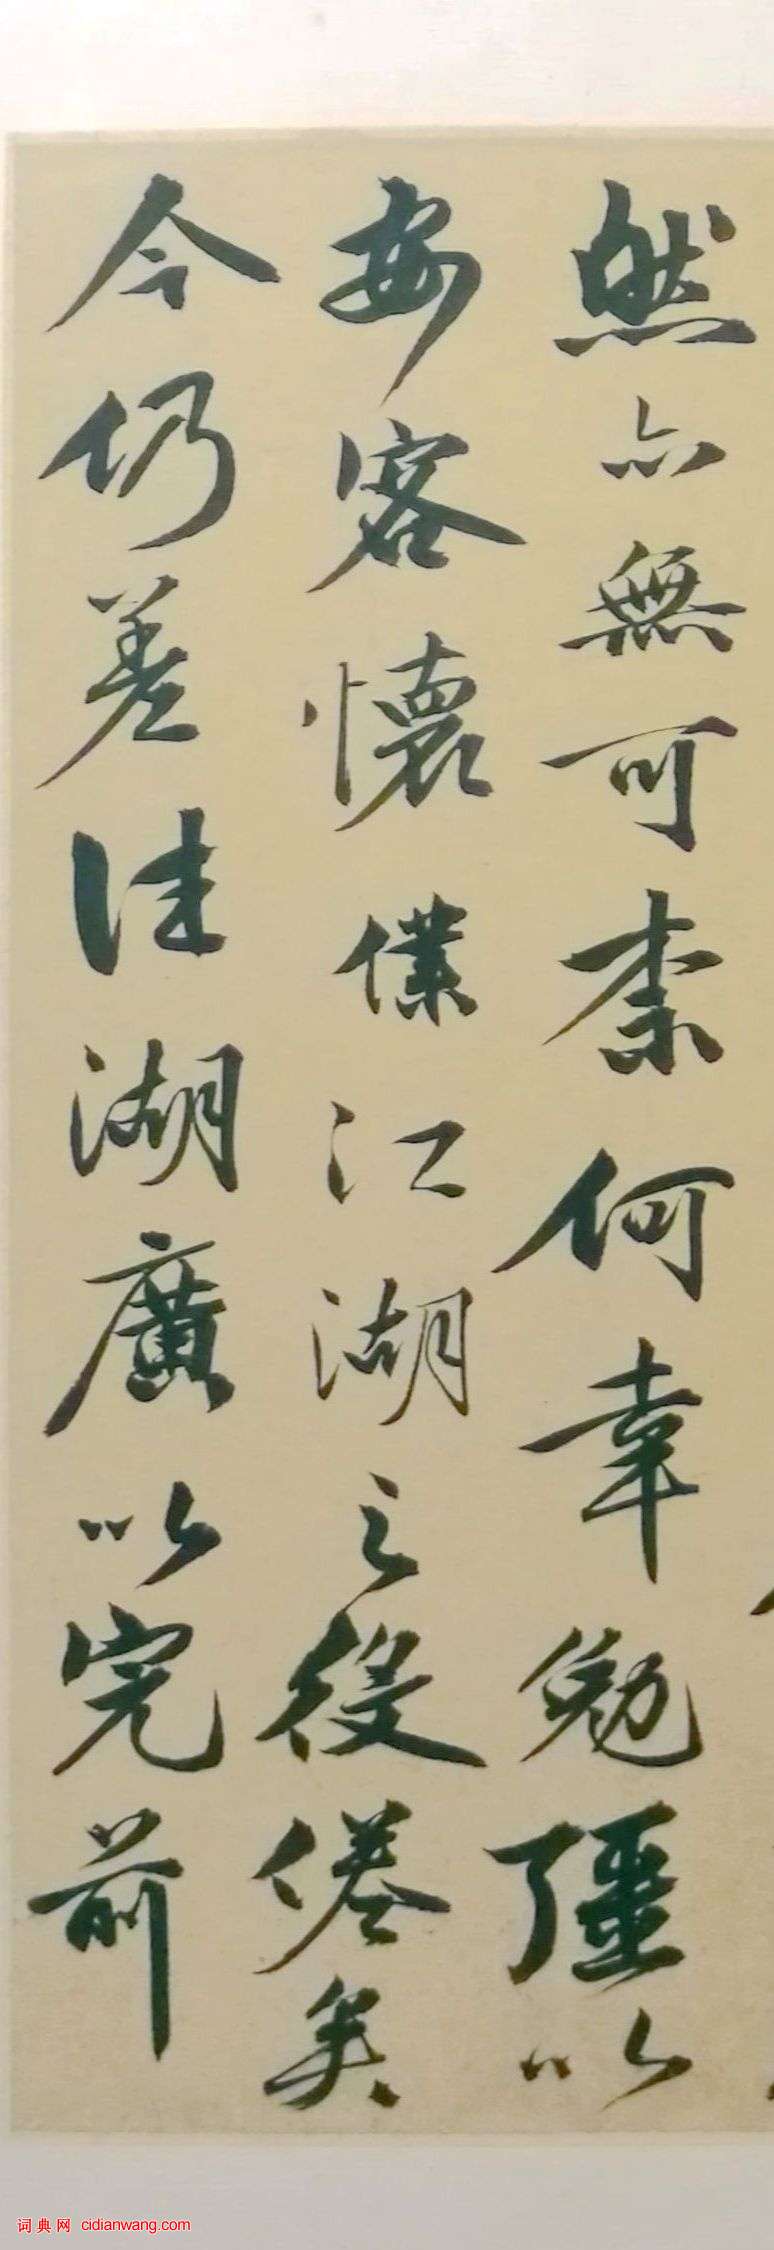 然亦無可柰何幸勉彊以
安客懷僕江湖之役倦矣
今仍差往湖廣以完前
词典网 cidianwang.com